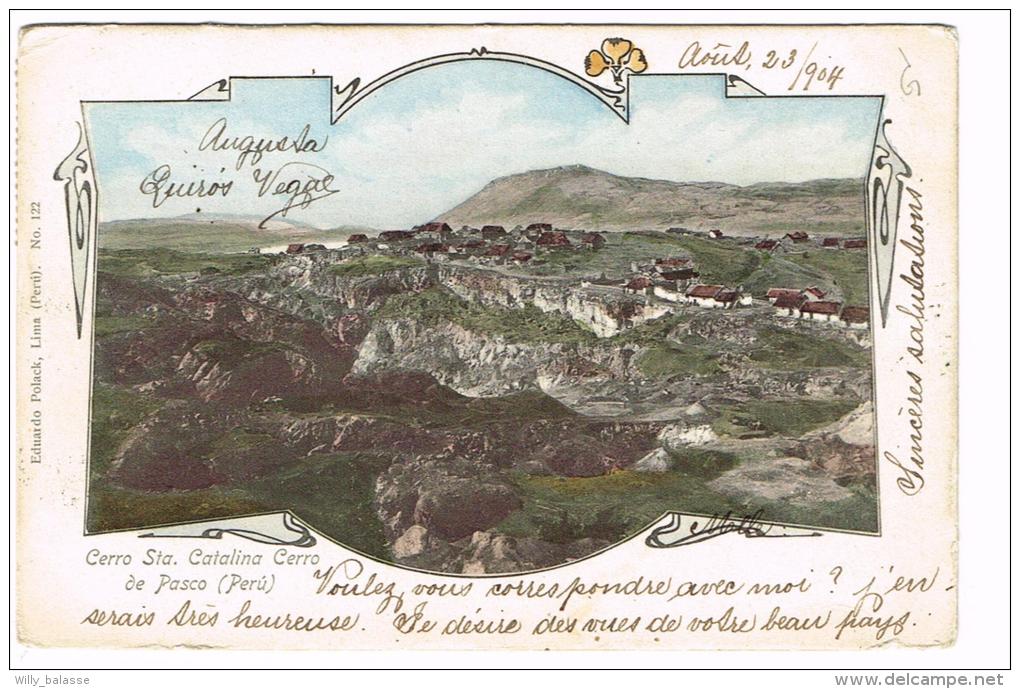 Août, 23/904
5
Augusta
Quirós Veggé
Eduardo Polack, Lima (Perú). No. 122
Sincères salutations.
Melle
Cerro Sta. Catalina Cerro
de Pasco (Perú)
Voulez, vous correspondre avec moi? j'en
serais très heureuse. Je désire des vues de votre beau pays.
Willy_balasse
www.delcampe.net